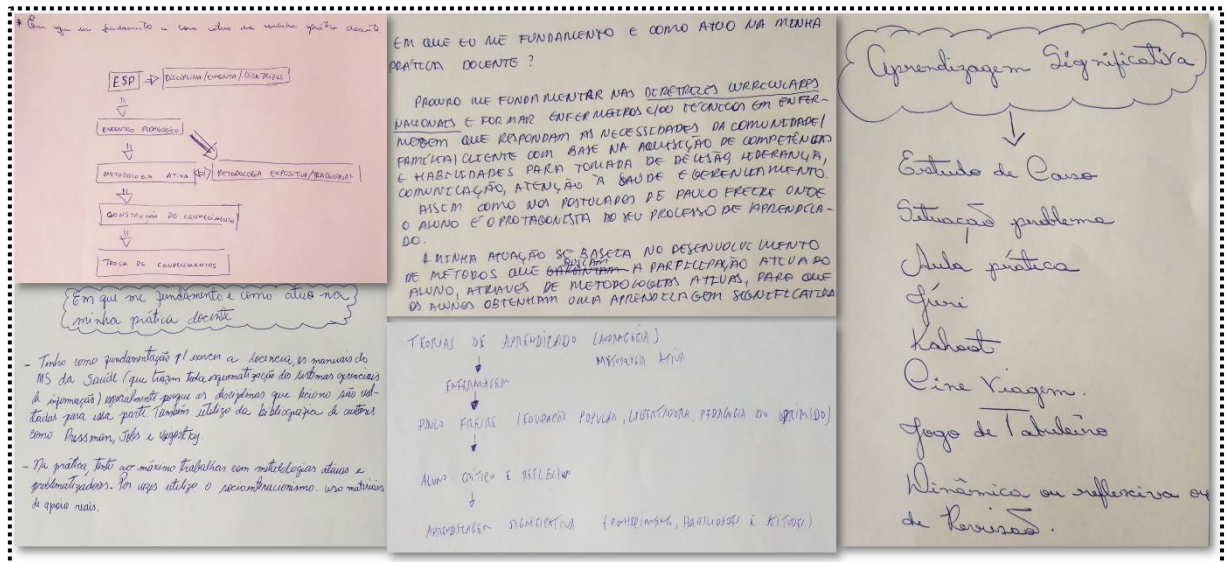 * Em que me fundamento e como atuo na minha prática docente.
ESP → DISCIPLINA/EMENTA/DIRETRIZES
ENCONTRO PEDAGÓGICO
METODOLOGIA ATIVA METODOLOGIA EXPOSITIVA/TRADICIONAL
CONSTRUÇÃO DO CONHECIMENTO
TROCA DE CONHECIMENTOS
Em que me fundamento e como atuo na
minha prática docente
- Tenho como fundamentação p/ exercer a docência, os manuais do
MS da Saúde (que trazem toda esquematização dos sistemas gerenciais
de informação) especialmente porque as disciplinas que leciono são
voltadas para essa parte. Também utilizo da bibliografia de autores
como Pressman, Jobs e Vygostky.
- Na prática, tento ao máximo trabalhar com metodologias ativas e
problematizadoras. Por vezes utilizo o sociointeracionismo. uso materiais
de apoio reais.
EM QUE EU ME FUNDAMENTO E COMO ATUO NA MINHA
PRÁTICA DOCENTE?
PROCURO ME FUNDAMENTAR NAS DIRETRIZES CURRICULARES
NACIONAIS E FORMAR ENFERMEIROS E/OU TÉCNICOS EM ENFER-
MAGEM QUE RESPONDAM AS NECESSIDADES DA COMUNIDADE/
FAMÍLIA/CLIENTE COM BASE NA AQUISIÇÃO DE COMPETÊNCIAS
E HABILIDADES PARA TOMADA DE DECISÃO, LIDERANÇA,
COMUNICAÇÃO, ATENÇÃO À SAÚDE E GERENCIAMENTO.
ASSIM COMO NOS POSTULADOS DE PAULO FREIRE ONDE
O ALUNO É O PROTAGONISTA DO SEU PROCESSO DE APRENDIZA-
DO.
A MINHA ATUAÇÃO SE BASEIA NO DESENVOLVIMENTO
DE MÉTODOS QUE GARANTAM BUSCAM A PARTICIPAÇÃO ATIVA DO
ALUNO, ATRAVÉS DE METODOLOGIAS ATIVAS, PARA QUE
OS ALUNOS OBTENHAM UMA APRENDIZAGEM SIGNIFICATIVA
TEORIAS DE APRENDIZADO (ANDRAGOGIA)
METODOLOGIA ATIVA
ENFERMAGEM
PAULO FREIRE (EDUCAÇÃO POPULAR, LIBERTADORA, PEDAGOGIA DO OPRIMIDO)
ALUNO CRÍTICO E REFLEXIVO
APRENDIZAGEM SIGNIFICATIVA (CONHECIMENTO, HABILIDADES E ATITUDES)
Aprendizagem Significativa
Estudo de Caso
Situação problema
Aula prática
Júri
Kahoot
Cine Viagem.
Jogo de Tabuleiro
Dinâmica ou reflexiva ou
de Revisão.